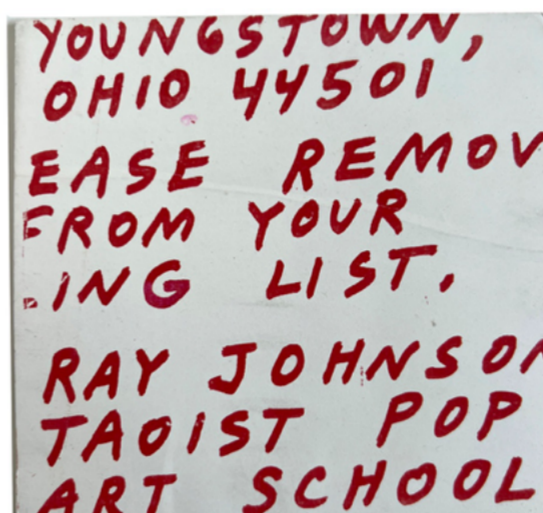 YOUNGSTOWN,
OHIO 44501
EASE REMOV
FROM YOUR
ING LIST.
RAY JOHNSON
TAOIST POP
ART SCHOOL